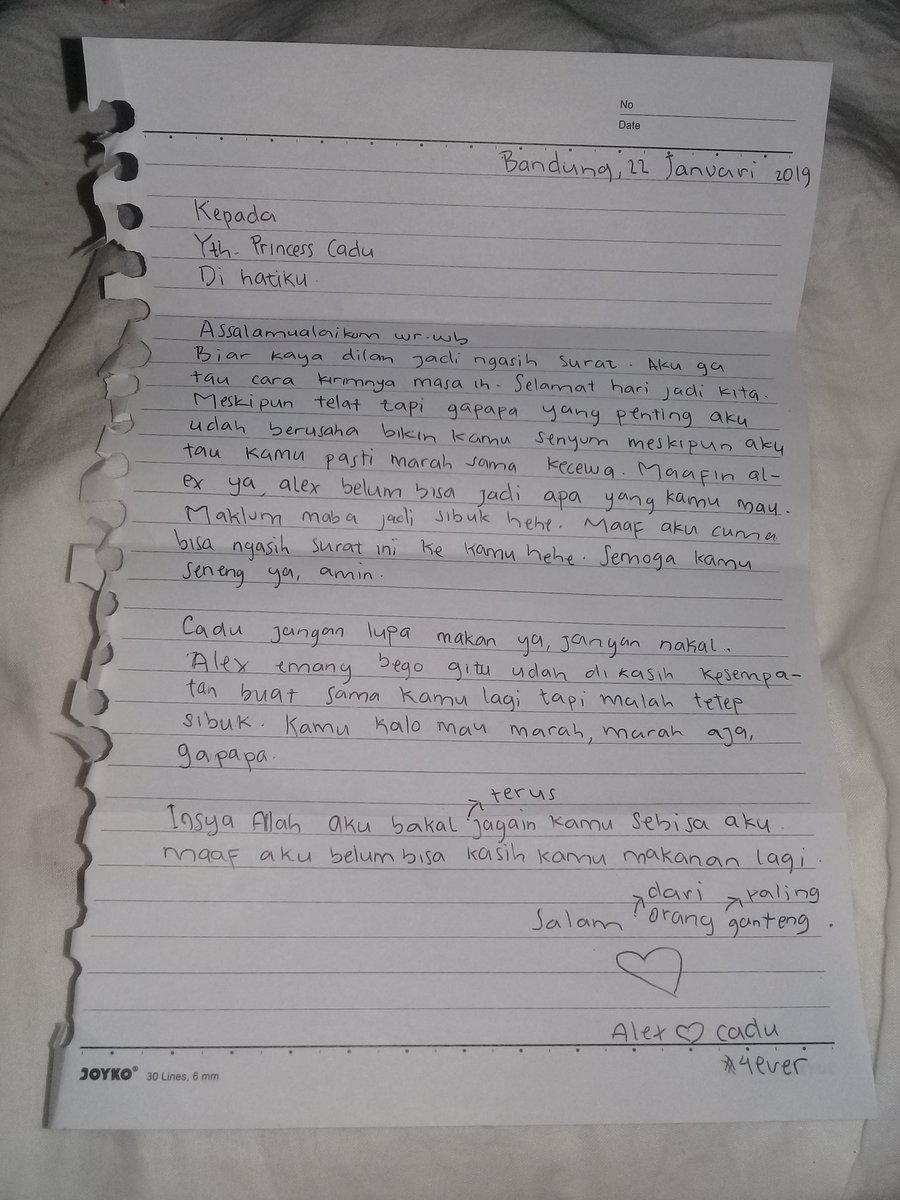 No
Date
Bandung, 22 Januari 2019
Kepada
Yth. Princess Cadu
Di hatiku.
Assalamualaikum wr.wb
Biar kaya dilan jadi ngasih surat. Aku ga
tau cara kirimnya masa ih. Selamat hari jadi kita.
Meskipun telat tapi gapapa yang penting aku
udah berusaha bikin kamu senyum meskipun aku
tau kamu pasti marah sama kecewa. Maafin al-
ex ya, alex belum bisa jadi apa yang kamu mau.
Maklum maba jadi sibuk hehe. Maaf aku cuma
bisa ngasih surat ini ke kamu hehe. Semoga kamu
seneng ya, amin.
Cadu jangan lupa makan ya, jangan nakal..
Alex emang bego gitu udah di kasih kesempa-
tan buat sama kamu lagi tapi malah tetep
sibuk. Kamu kalo mau marah, marah aja,
gapapa.
Insya Allah aku bakal terus jagain kamu sebisa aku.
maaf aku belum bisa kasih kamu makanan lagi.
Salam dari orang paling ganteng.
Alex ♡ cadu
4ever
JOYKO® 30 Lines, 6 mm